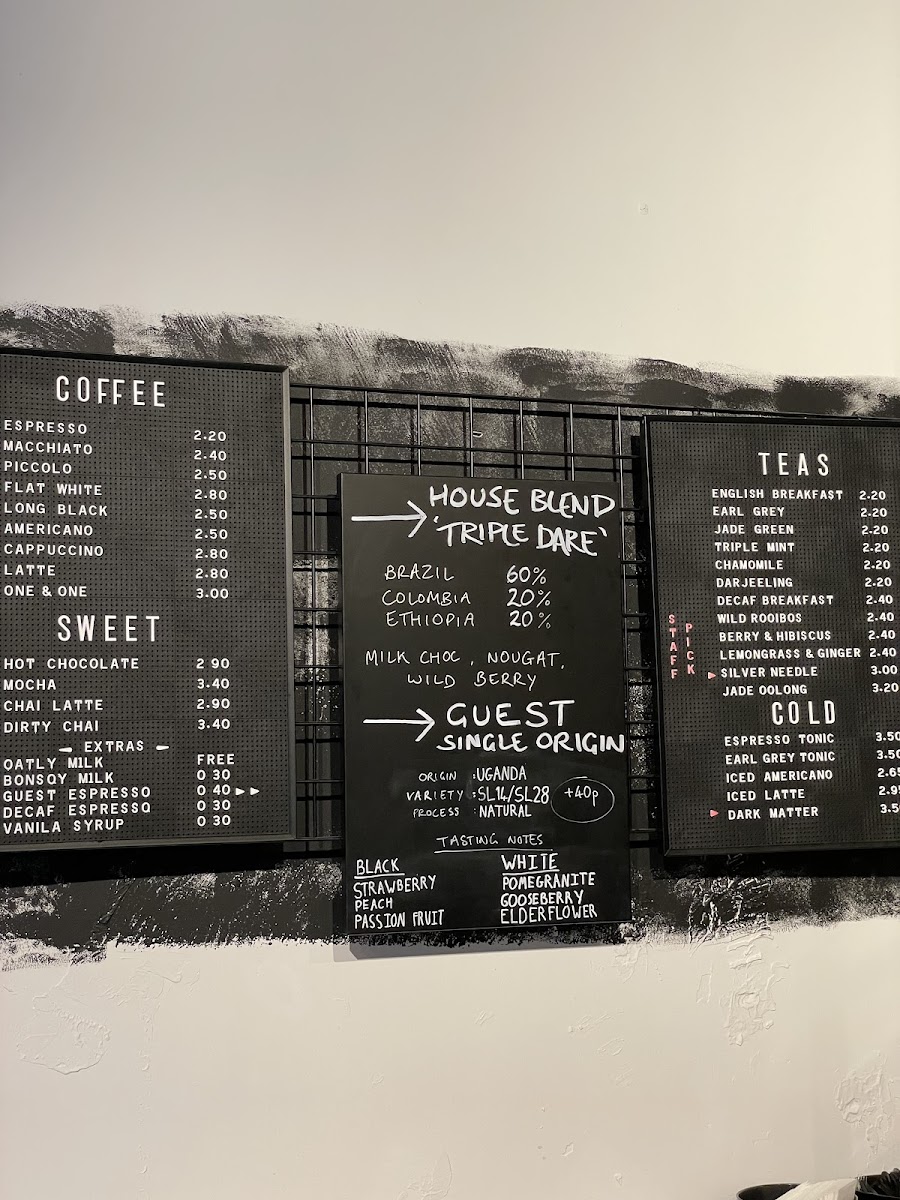 COFFEE
ESPRESSO 2.20
MACCHIATO 2.40
PICCOLO 2.50
FLAT WHITE 2.80
LONG BLACK 2.50
AMERICANO 2.50
CAPPUCCINO 2.80
LATTE 2.80
ONE & ONE 3.00
SWEET
HOT CHOCOLATE 2 90
MOCHA 3.40
CHAI LATTE 2.90
DIRTY CHAI 3.40
EXTRAS
OATLY M1LK FREE
BONSOY MILK 0 30
GUEST ESPRESSO 0 40
DECAF ESPRESSO 0 30
VANILA SYRUP 0 30
HOUSE BLEND
'TRIPLE DARE'
BRAZIL 60%
COLOMBIA 20%
ETHIOPIA 20%
MILK CHOC, NOUGAT,
WILD BERRY
GUEST
SINGLE ORIGIN
ORIGIN : UGANDA
VARIETY : SL14/SL28
PROCESS : NATURAL
+40p
TASTING NOTES
BLACK
STRAWBERRY
PEACH
PASSION FRUIT
WHITE
POMEGRANITE
GOOSEBERRY
ELDERFLOWER
TEAS
ENGLISH BREAKFAST 2.20
EARL GREY 2.20
JADE GREEN 2.20
TRIPLE MINT 2.20
CHAMOMILE 2.20
DARJEELING 2.20
DECAF BREAKFAST 2.40
WILD ROOIBOS 2.40
BERRY & HIBISCUS 2.40
LEMONGRASS & GINGER 2.40
SILVER NEEDLE 3.00
JADE OOLONG 3.20
STAFF PICK
COLD
ESPRESSO TONIC 3.50
EARL GREY TONIC 3.50
ICED AMERICANO 2.65
ICED LATTE 2.95
DARK MATTER 3.5